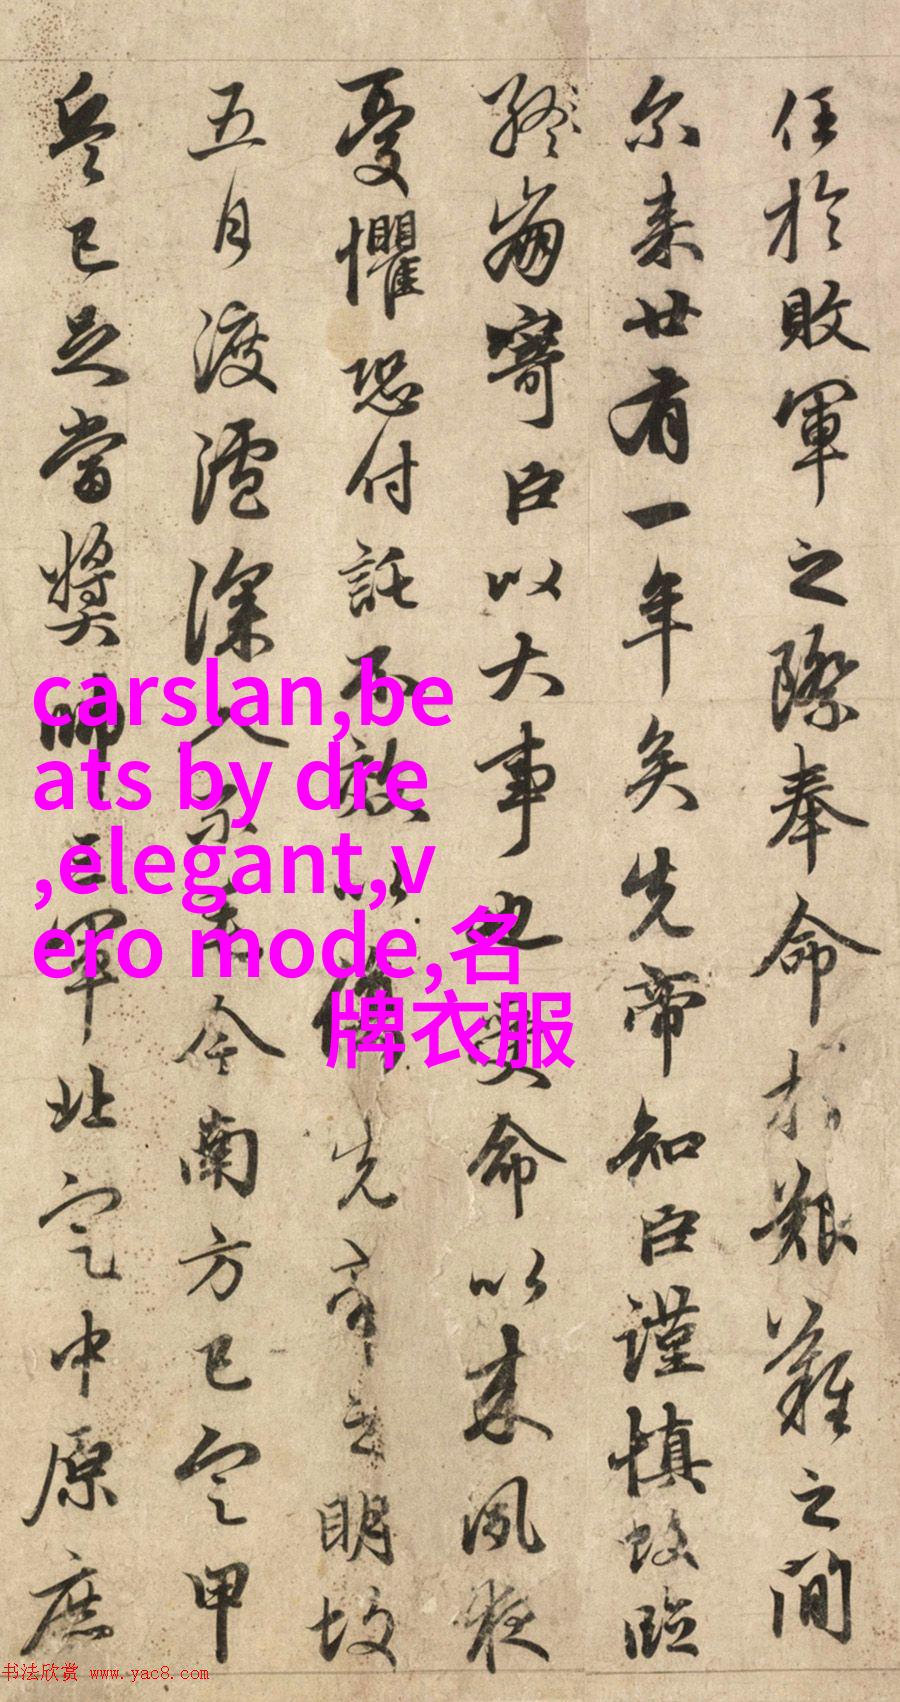 任於敗軍之際奉命於艱難之間
尔来廿有一年矣先帝知臣謹慎故臨
終崩寄臣以大事也受命以来夙夜
憂懼恐付託不效以傷先帝之明故
五月渡瀘深入不毛今南方已定甲
兵已足當獎帥三軍北定中原庶
carslan,be
ats by dre
,elegant,v
ero mode,名
牌衣服
书法欣赏 www.yac8.com